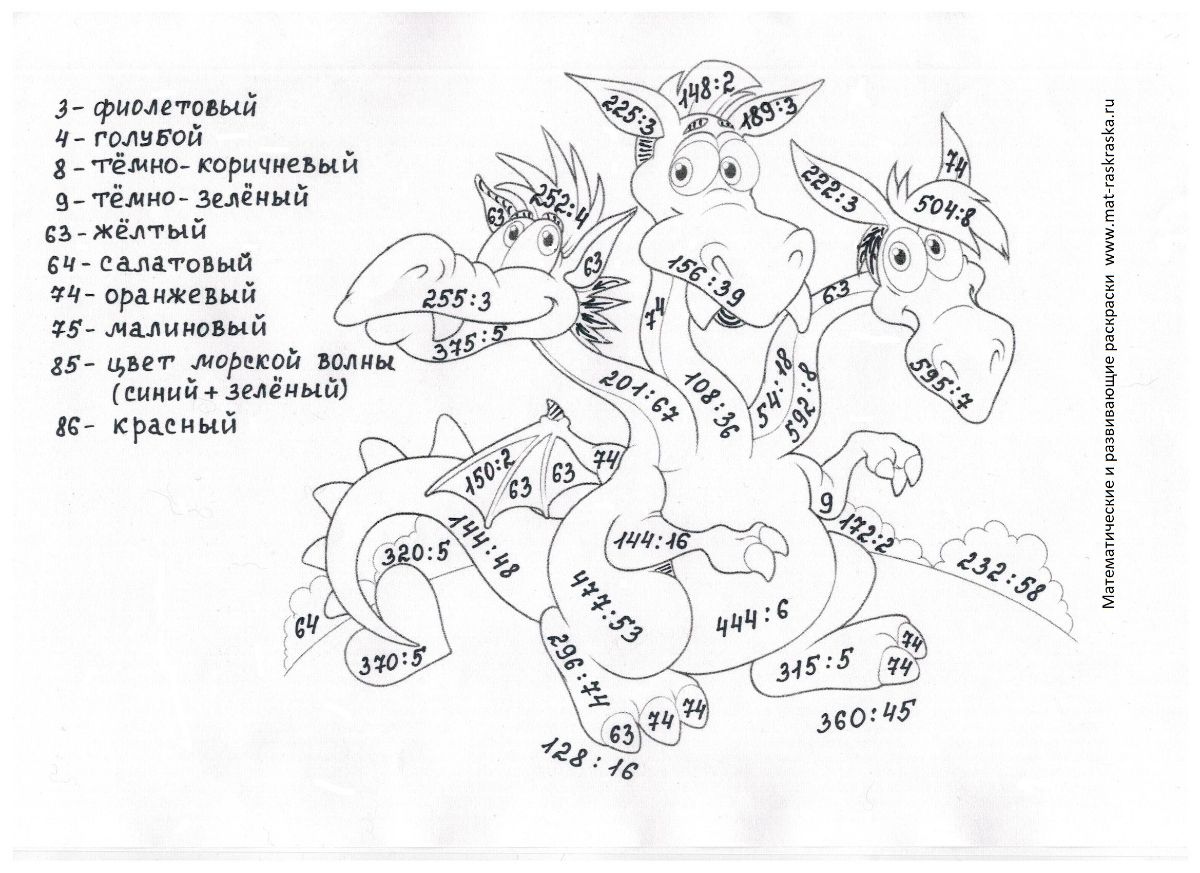 3 - фиолетовый
4 - голубой
8 - тёмно-коричневый
9 - тёмно-зелёный
63 - жёлтый
64 - салатовый
74 - оранжевый
75 - малиновый
85 - цвет морской волны
(синий + зелёный)
86 - красный
148:2
225:3
189:3
74
222:3
504:8
252:4
63
63
156:39
255:3
74
63
375:5
595:7
201:67
108:36
54:18
592:8
150:2
63
63
74
9
144:48
144:16
172:2
320:5
232:58
477:53
444:6
64
296:74
370:5
315:5
74
74
63
74
74
360:45
128:16
Математические и развивающие раскраски www.mat-raskraska.ru